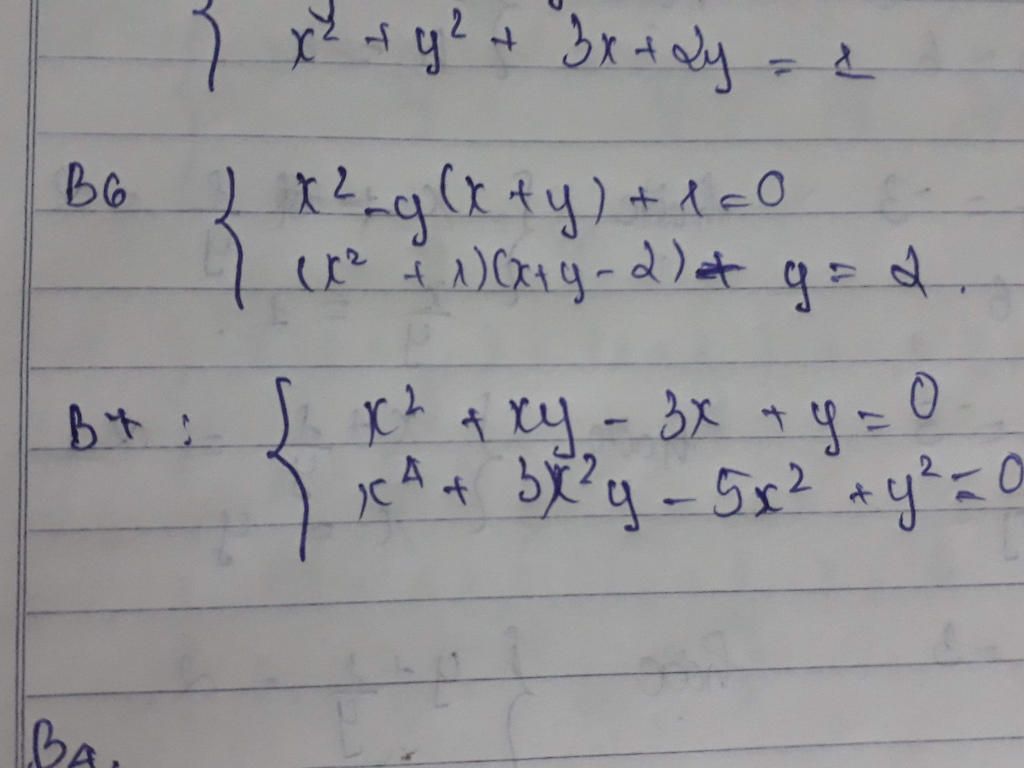 x² + y² + 3x + 2y = 1
B6 { x² - y(x + y) + 1 = 0
(x² + 1)(x + y - 2) + y = 2.
B7 : { x² + xy - 3x + y = 0
x⁴ + 3x²y - 5x² + y² = 0